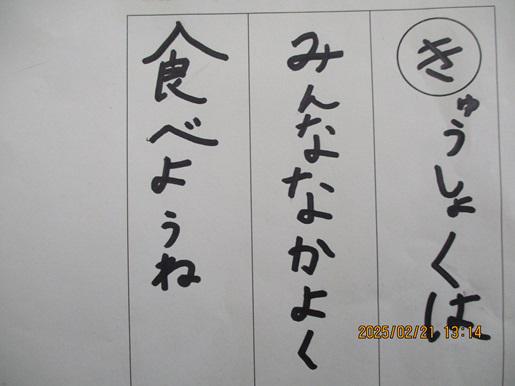 きゅうしょくは
みんななかよく
食べようね
2025/02/21 13:14